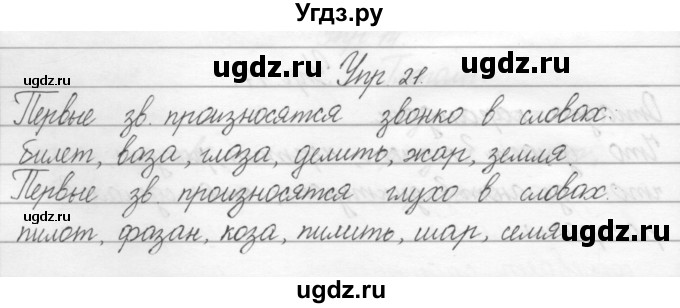 Угдз.ру
ugdz.ru ugdz.ru
Упр 21.
Первые зв. произносятся звонко в словах:
ugdz.ru
билет, ваза, глаза, делить, жар, земля
Первые зв. произносятся глухо в словах:
ugdz.ru ugdz.ru
пилот, фазан, коза, пилить, шар, семя
Угдз.ру